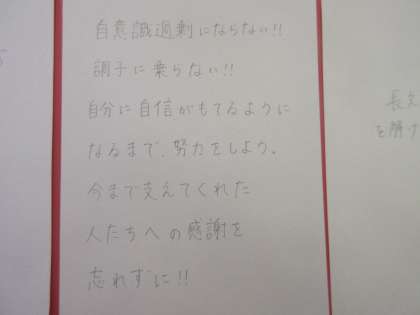 自意識過剰にならない!!
調子に乗らない!!
自分に自信がもてるように
なるまで、努力をしよう。
今まで支えてくれた
人たちへの感謝を
忘れずに!!
長文
を解け